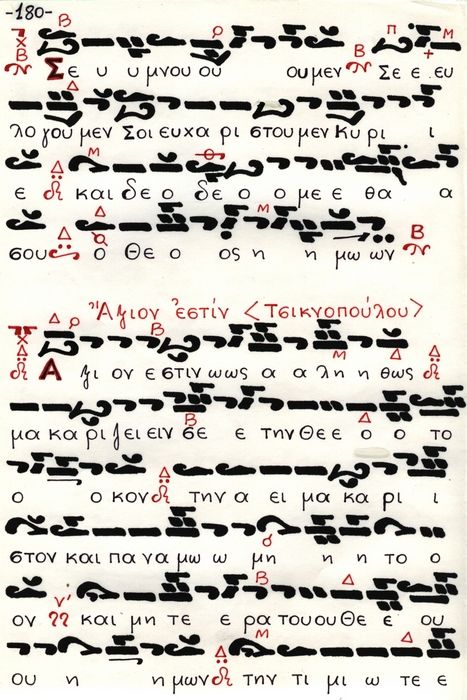 -180-
Σε υ υ μνου ου ου μεν Σε ε ευ
λο γου μεν Σοι ευ χα ρι στου μεν Κυ ρι ι
ε και δε ο δε ο ο με ε θα α
σου ο Θε ο ος η η μω ων
Ἅγιον ἐστίν <Τσικνοπούλου>
Α ξι ον ε στιν ως ως α α λη η θως
μα κα ρι ζει ειν σε ε την Θε ε ο ο το
ο ο κον την α ει μα κα ρι ι
στον και πα να μω ω μη η η το ο
ον και μη τε ε ρα του ου Θε ε ου
ου η η μων την τι μι ω τε ε